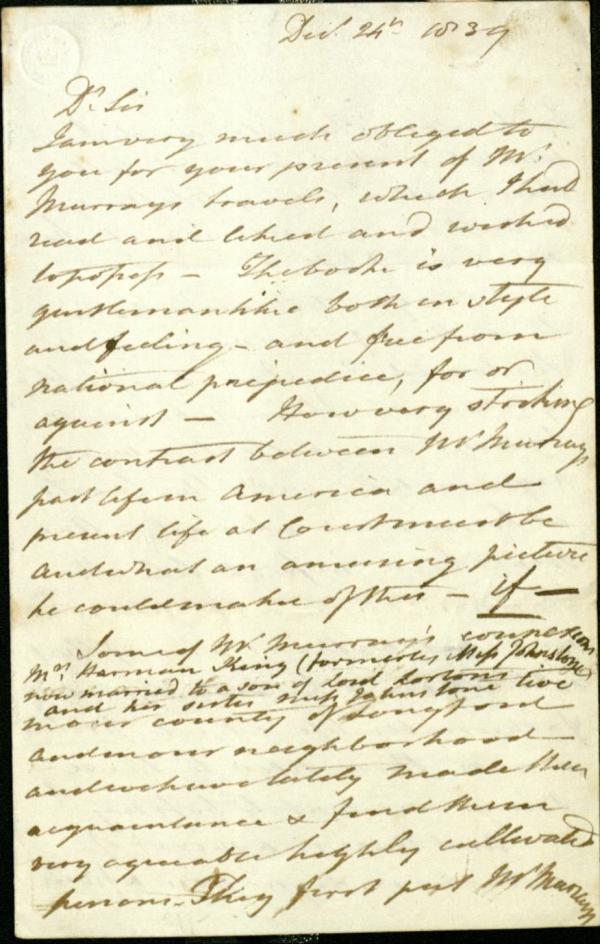 Dec. 24th 1839
Dr. Sir
I am very much obliged to
you for your present of Mr.
Murrays travels, which I had
read and liked and wished
to possess – The book is very
gentlemanlike both in style
and feeling – and free from
national prejudice, for or
against – How very striking
the contrast between Mr Murrays
past life in America and
present life at Court must be
and what an amusing picture
he could make of this – if –
Some of Mr. Murray's connexions
Mrs. Harman King (formerly Miss Johnstone)
now married to a son of Lord Lortons
and her sister Miss Johnstone live
in our county of Longford
and in our neighborhood
and we have lately made their
acquaintance & find them
very agreeable highly cultivated
persons – They first put Mr Murrays